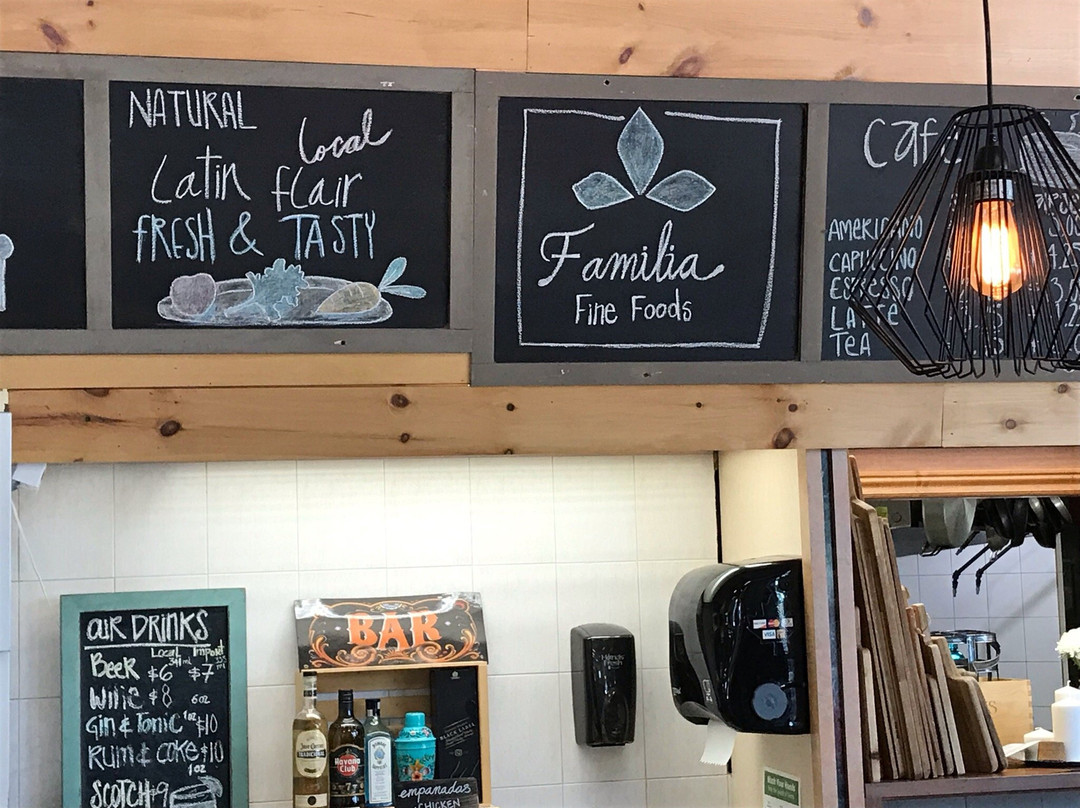 NATURAL
Local
Latin flair
FRESH & TASTY
Familia
Fine Foods
Café
AMERICANO
CAPUCCINO
ESPRESSO
LATTE
TEA
OUR DRINKS
Local Import
Beer $6 341 ml $7
Wine $8 6oz
Gin & Tonic 1oz $10
Rum & coke $10
1oz
SCOTCH $9
BAR
Jose Cuervo
Havana
Club
BLACK LABEL
empanadas
CHICKEN
VISA